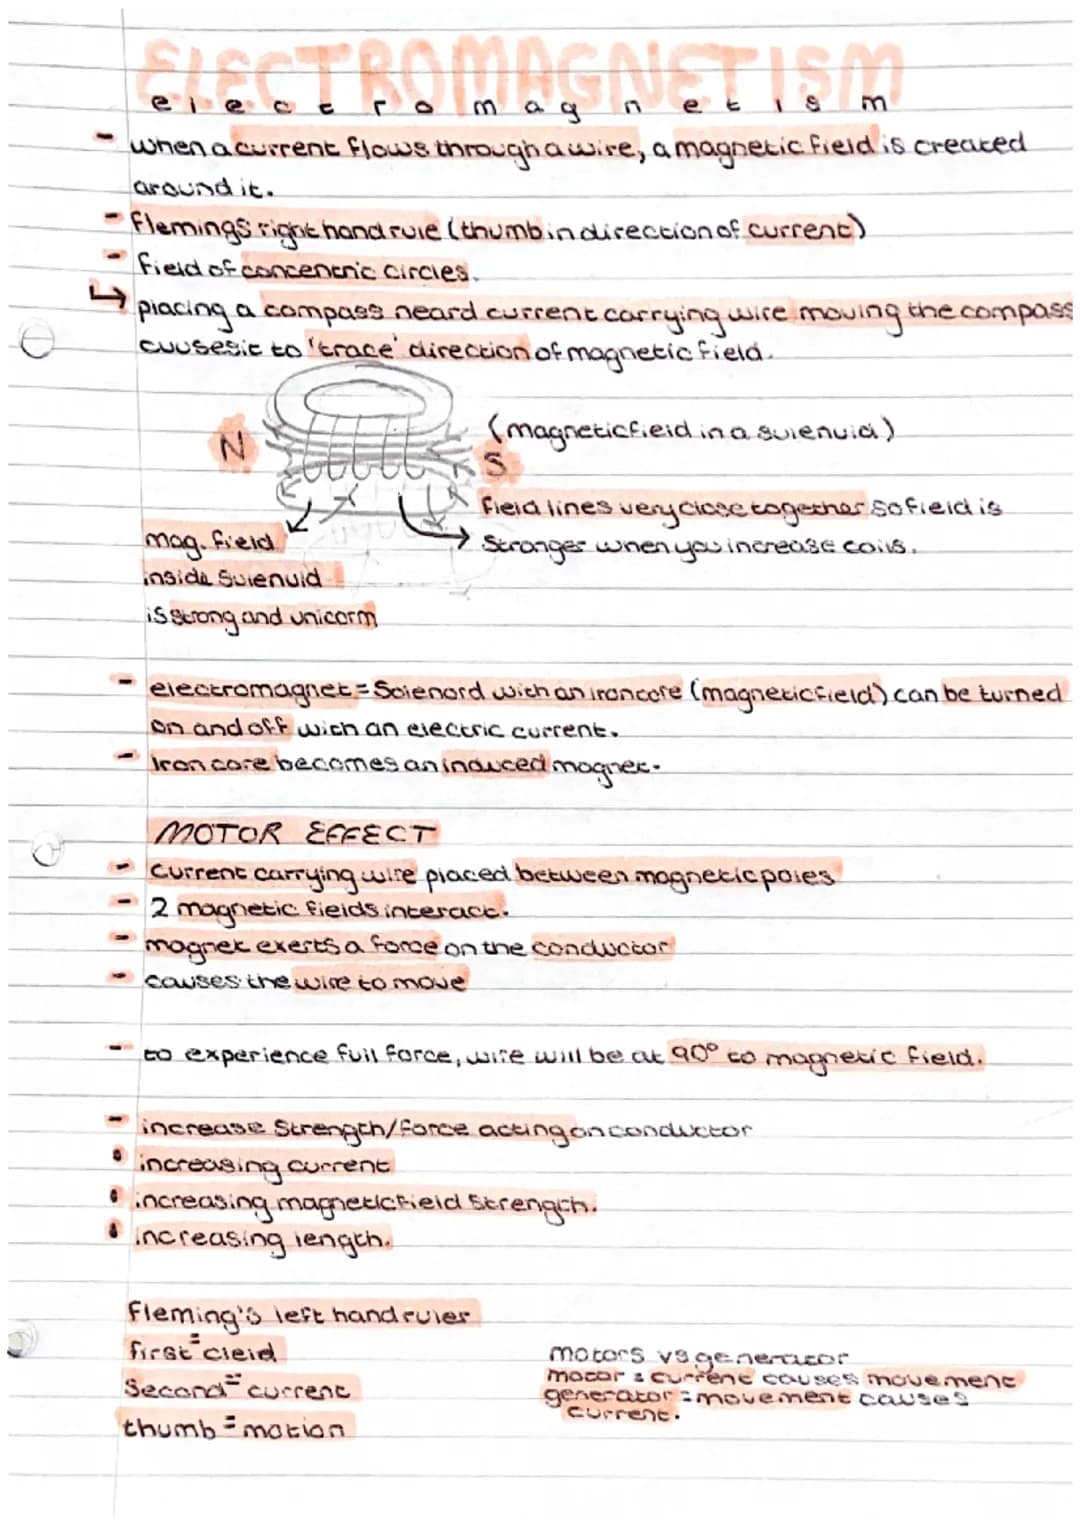 ELECTROMAGNETISM
electromagnetism
- when a current flows through a wire, a magnetic field is created
around it.
- Flemings right hand rule (thumb in direction of current)
- field of concentric circles.
↳ placing a compass neard current carrying wire moving the compass
cuusesit to 'trace' direction of magnetic field.
(magnetic field in a suienuid)
N
S
field lines very close together so field is
stronger when you increase coils.
mag. field
inside suienuid
is strong and unicorm
- electromagnet = Solenord with an iron core (magnetic field) can be turned
on and off with an electric current.
- Iron core becomes an induced magnet.
MOTOR EFFECT
- Current carrying wire placed between magnetic poles
- 2 magnetic fields interact.
- magnet exerts a force on the conductor
- causes the wire to move
- to experience full force, wire will be at 90° to magnetic field.
- increase strength/force acting on conductor
• increasing current
• increasing magnetic field strength.
• increasing length.
Fleming's left hand ruler
first = cield
Second = current
thumb = motion
motors vs generator
motor = current causes movement
generator = movement causes
current.